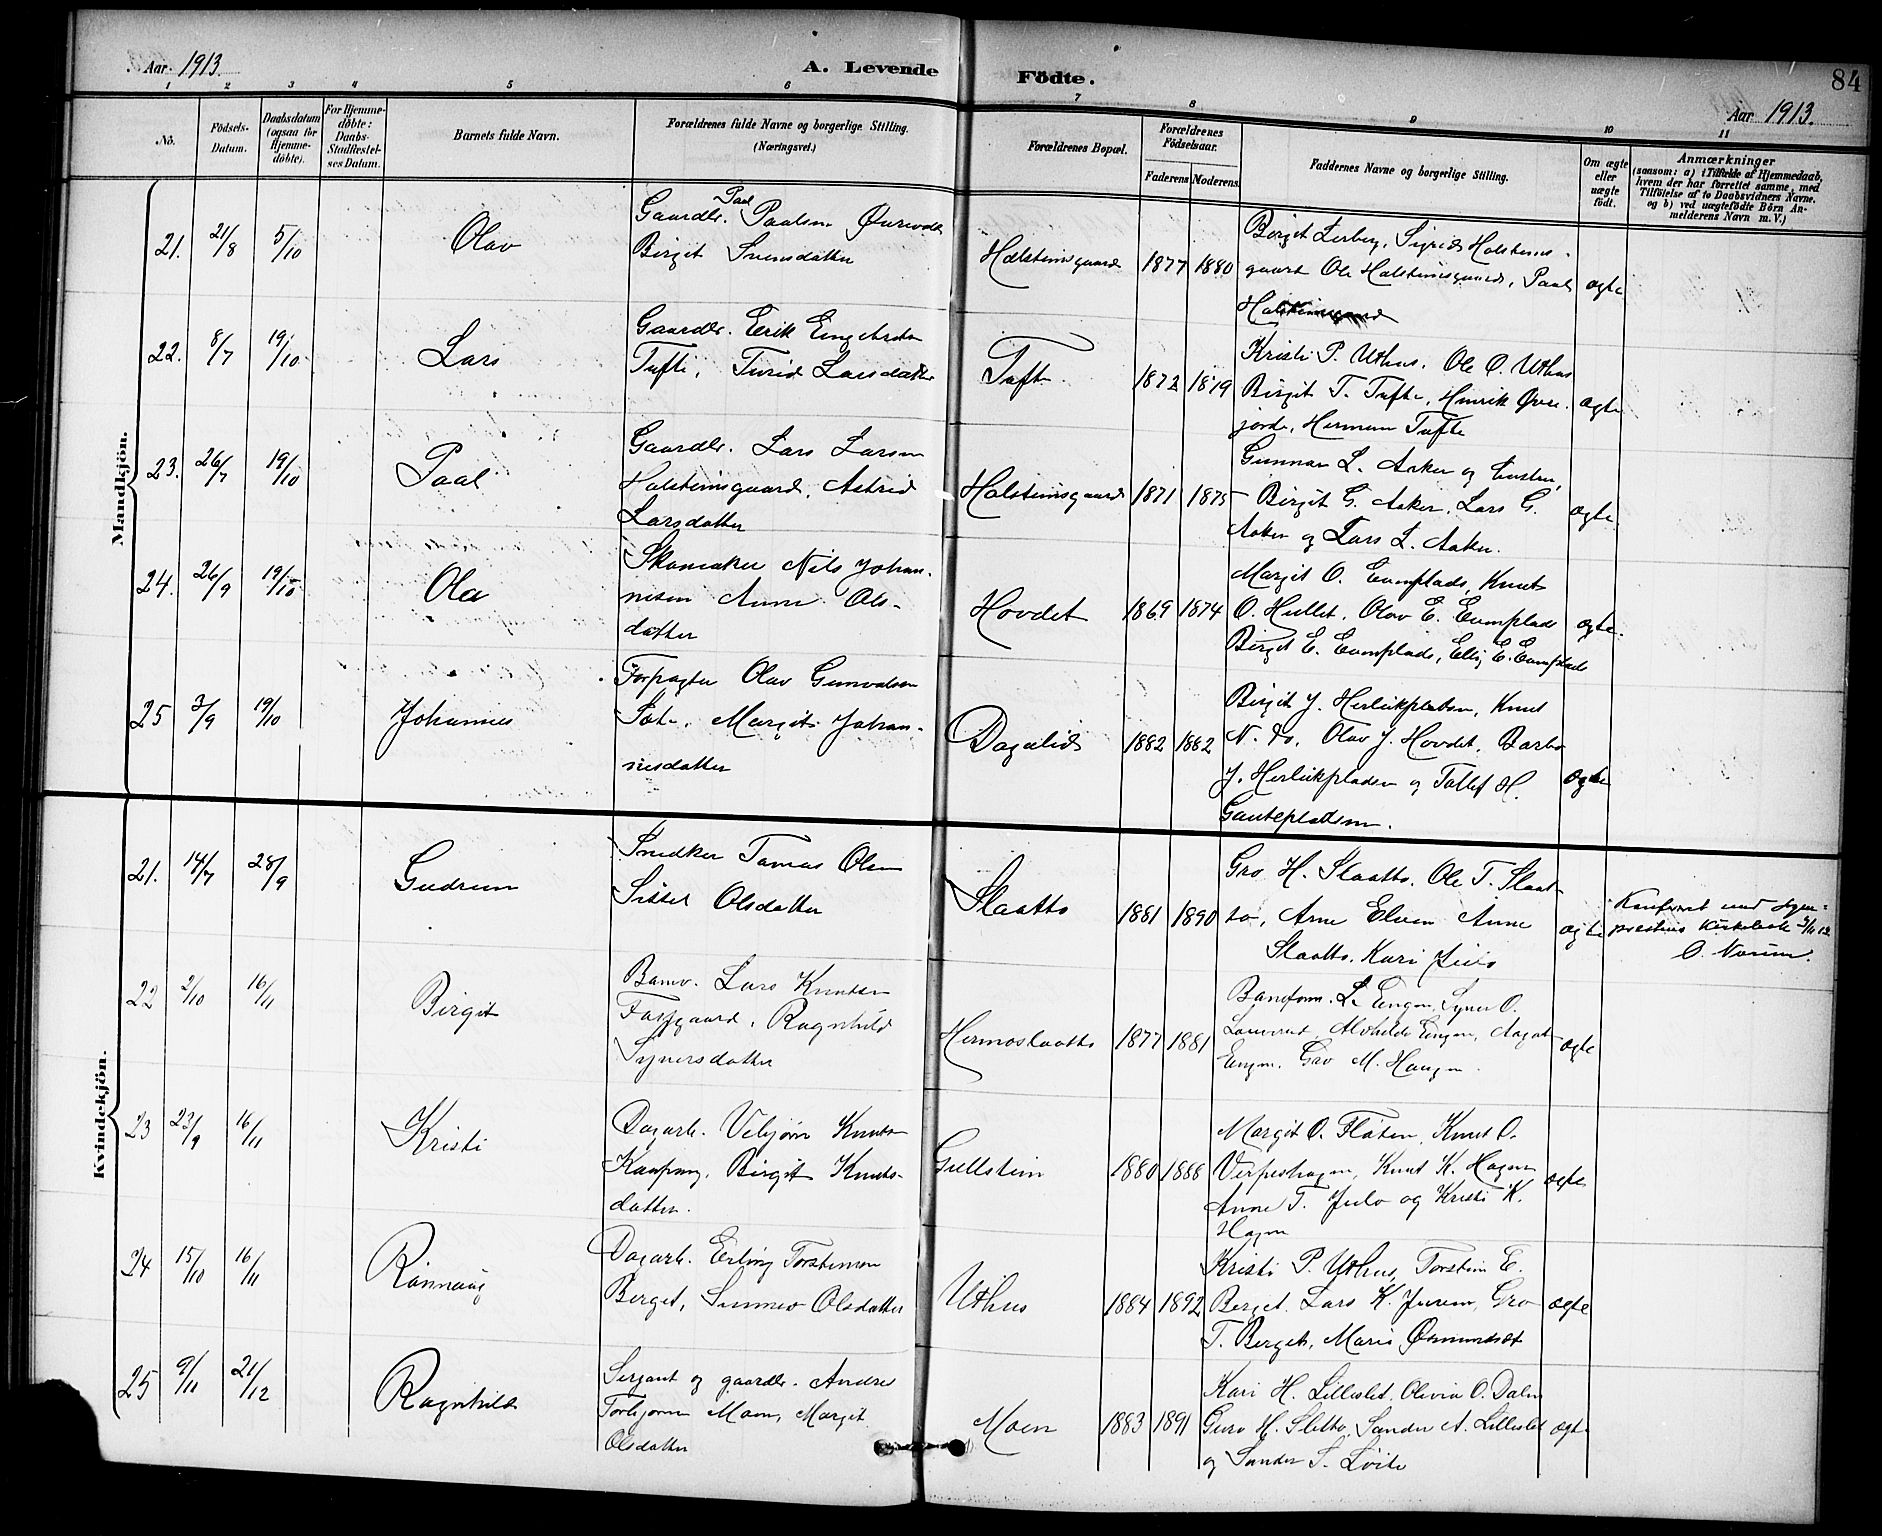 Aar 1913.
A. Levende
Födte.
84
Aar 1913.
1 2 3 4 5 6 7 8 9 10 11
No.
Födsels-
Datum.
Daabsdatum
(ogsaa for
Hjemme-
döbte).
For Hjemme-
döbte:
Daabs-
Stadfestel-
ses Datum.
Barnets fulde Navn.
Forældrenes fulde Navne og borgerlige Stilling.
(Næringsvei.)
Forældrenes Bopæl.
Forældrenes
Födselsaar.
Faderens
Moderens
Faddernes Navne og borgerlige Stilling.
Om ægte
eller
uægte
födt.
Anmærkninger
(saasom: a) i Tilfælde af Hjemmedaab,
hvem der har forrettet samme, med
Tilföielse af to Daabsvidners Navne.
og b) ved uægtefödte Börn An-
melderens Navn m. V.)
Mandkjön.
21. 21/8 5/10 Olav
Paal
Gaardbr. Paalsen
Birget Svensdatter
Halsteinsgaard 1877 1880
Birget Sigrid Halsteins-
gaard Ole Halsteinsgaard, Paal
Halsteinsgaard
ægte
22. 8/7 19/10 Lars
Gaardbr. Eerik Engebretsen
Tufte, Turid Larsdatter
Tufte 1872 1879
Kristi P. Uthus, Ole O. Uthus
Birgit T. Tufte, Henrik Øvre-
jorde, Herman Tufte
ægte
23. 26/7 19/10 Paal
Gaardbr. Lars Larsen
Halsteinsgaard, Astrid
Larsdatter
Halsteinsgaard 1871 1875
Gunnar L. Aaker og
Birgit G. Aaker, Lars G.
Aaker og Lars L. Aaker.
ægte
24. 26/9 19/10 Ola
Skomaker Nils Johan-
nesen Anne Ols-
datter
Hovdet 1869 1874
Margit O. Evenplads, Knut
O. Hullet, Olav E. Evenplads
Birget E. Evenplads, Elli E. Evenplads
ægte.
25 3/9 19/10 Johannes
Forpagter Olav Gunvaldsen
Margit Johan-
nesdatter
Dagalid 1882 1882
Birgit J. Herleikpladsen, Knut
N. do, Olav J. Hovdet, Barbo
J. Herleikpladsen og Tollef H.
Gautepladsen.
ægte
Kvindekjön.
21. 14/7 28/9 Gudrun
Snedker Tomas Olsen
Sissel Olsdatter
Slaatto 1881 1890
Gro H. Slaatto, Ole T. Slaat-
to, Arne Elven Anne
Slaatto, Kari
ægte
Konferert med Sogne-
prestens Kirkebok
O. Norum.
22 2/10 16/11 Birgit
Banev. Lars Knutsen
Fossgaard, Ragnhild
Synersdatter
Hermoslaatto 1877 1881
Baneform. L. Engen, Syver O.
Alvhilde Engen, Aagot
Engen, Gro M. Haugen.
ægte
23 23/9 16/11 Kristi
Dagarb. Vebjørn Knutsen
Kaupang, Birgit Knuts-
datter.
Gullstein 1880 1888
Margit O. Fløten, Knut O.
Verpeshagen, Knut K. Hagen
Anne T. Julo og Kristi K.
Hagen
ægte
24 15/10 16/11 Rønnaug
Dagarb. Erling Torsteinsen
Berget, Sunnev Olsdatter
Uthus 1884 1892
Kristi P. Uthus, Torstein E.
Berget, Lars K. Juven, Gro
T. Berget, Maria Øsmundset
ægte
25 9/11 21/12 Ragnhild
Sersjant og gaardbr. Andres
Torbjørnsen Moen, Margit
Olsdatter
Moen 1883 1891
Kari H. Lilleslet, Olivia O. Dalen
Guro H. Sletto, Sander A. Lilleslet
og Sander S. Loite
ægte